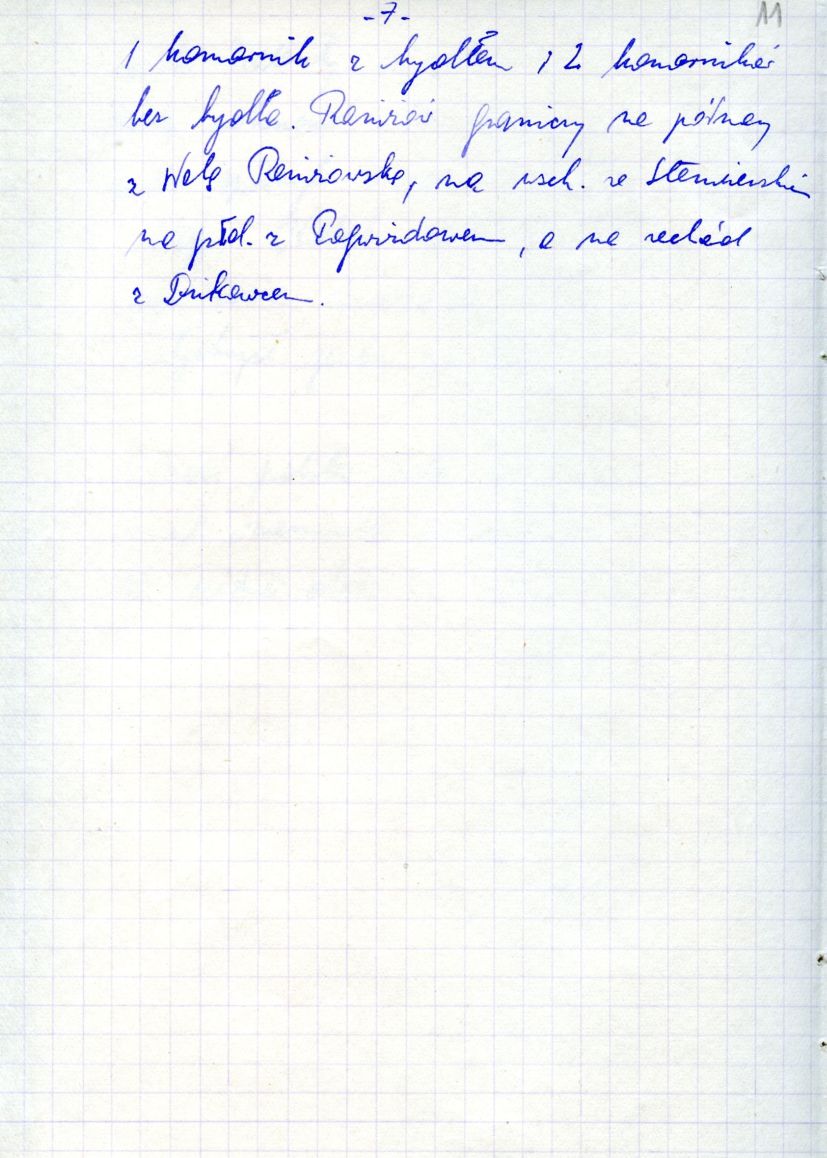 -7-
11
1 komornik z bydłem i 2 komorników
bez bydła. Raniżów graniczy na północy
z Wolą Raniżowską, na wsch. ze
na płd. z Pogwizdowem, a na zachód
z Dzikowcem.